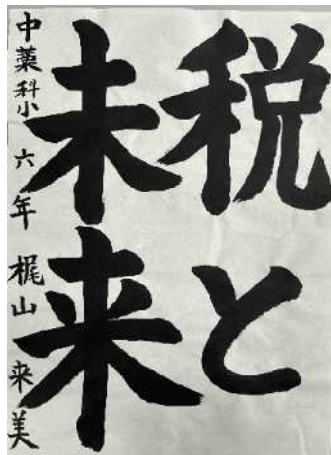 税と
未来
中藁科小 六年 梶山 来美